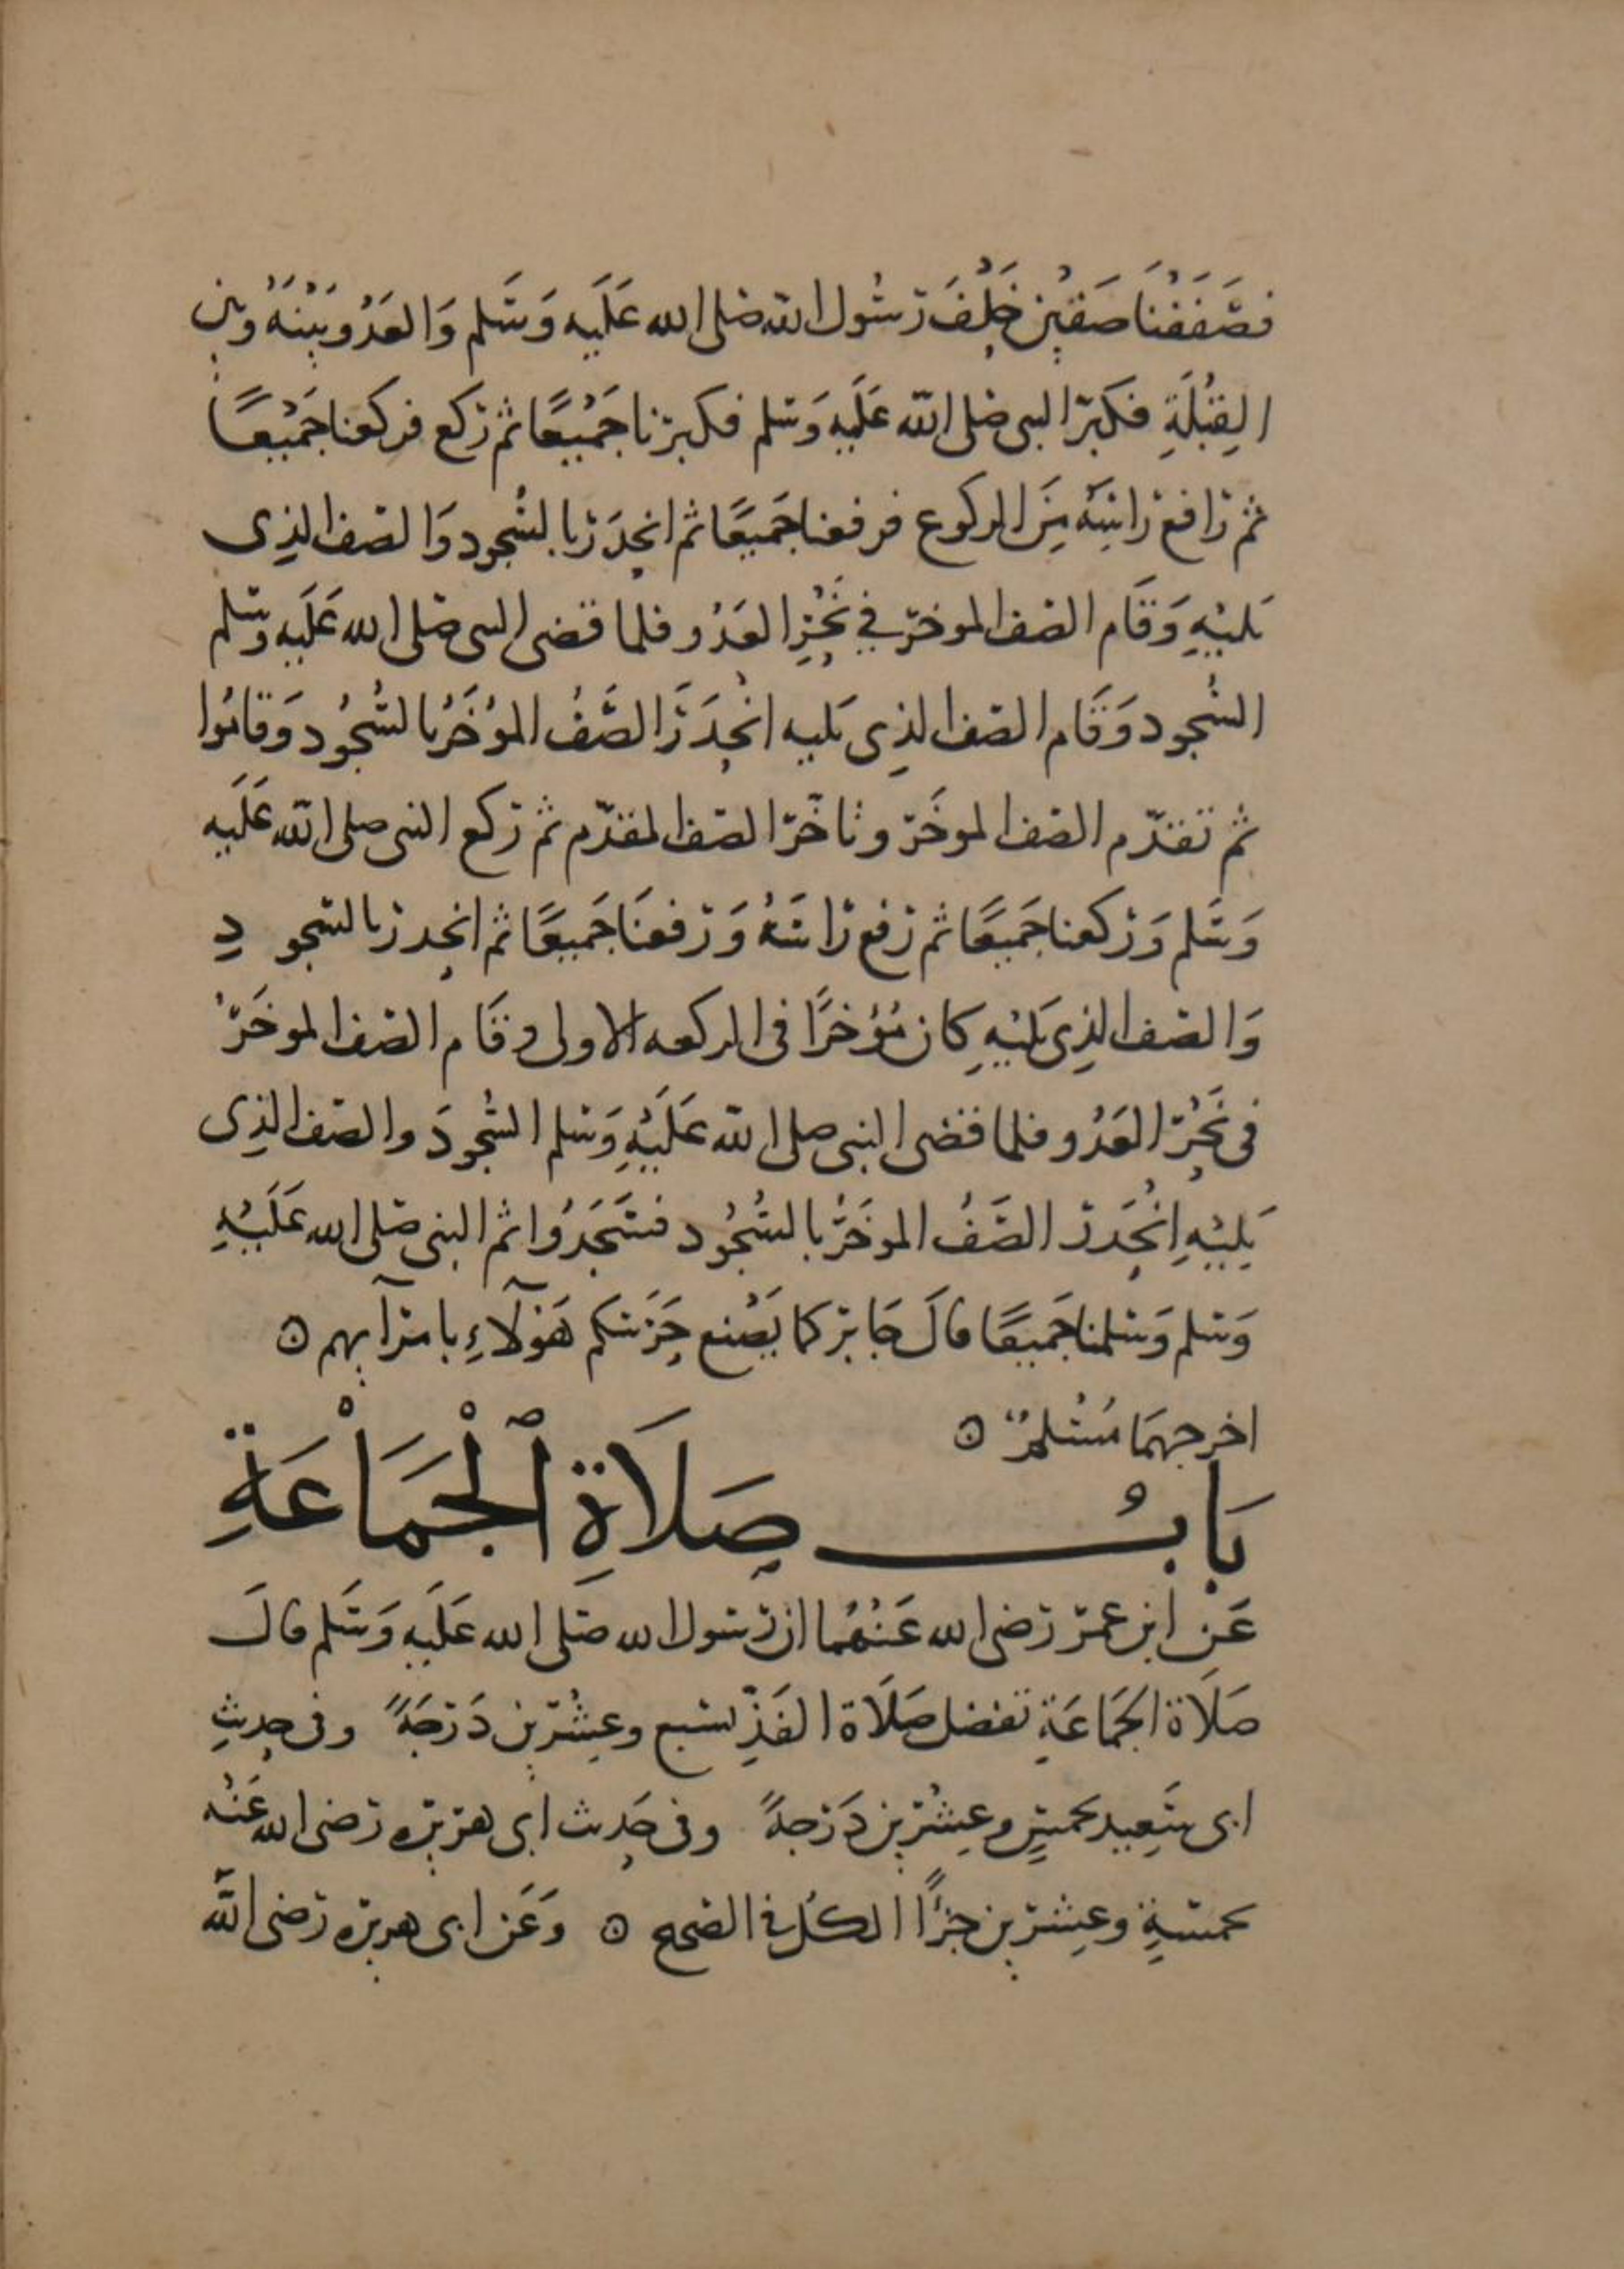 فصَفَفْنَا صَفَّيْنِ خَلْفَ رَسُول الله صَلى الله عَلَيه وَسَلم وَالعَدُو بَيْنَهُ وبين
القِبْلَةِ فكَبّر النبى صَلى الله عَلَيهِ وَسَلم فكبرنا جَمْيعًا ثم ركع فركعنا جَمْيعًا
ثم رَافع رَاسَهُ مِنَ الركوع فرفعنا جَميعًا ثم انحدَرَ بالسُّجود وَالصَف الذِى
يَليْهِ وَقَام الصَف الموخر في نَحْرِ العَدُو فلما قضى النبى صَلى الله عَلَيه وَسَلم
السُّجود وَقَام الصَف الذِى يَليه انْحدَرَ الصَّفُ المؤخَرُ بالسُّجُود وَقامُوا
ثم تقدّم الصَف الموخَر وتاخّر الصَف المقدّم ثم ركع النبى صلى الله عَلَيه
وَسَلم وَركعنا جَميعًا ثم رَفع رَاسَهُ وَرَفعنَا جَميعًا ثم انحدر بالسجو دِ
وَالصَف الذِى يَليْهِ كان مُؤخرًا فى الركعه الاولى وقَام الصَف الموخَرُ
فى نَحْرِ العَدُو فلما قضى النبى صلى الله عَلَيْهِ وَسَلم السُّجودَ والصَف الذِى
يَلِيْهِ اِنْحَدر الصَّفُ الموخَرُ بالسُّجُود فسَجَدُوا ثم النبى صَلى الله عَلَيْهِ
وَسَلم وَسَلمنا جَميعًا قالَ جَابر كما يَصْنع حَرَسَكم هَؤلآءِ بامرآيهم ۞
اخرجهمَا مُسْلمٌ ۞
بَابُ صَلَاةِ ٱلْجَمَاْعَةِ
عَن ابن عمَر رَضى الله عَنْهُما ان رَسول الله صَلى الله عَلَيه وَسَلم قالَ
صَلَاة الجَمَاعَةِ تفضل صَلَاة الفَذِّ بسَبع وعِشْرين دَرَجَةً وفى حديثِ
ابى سَعِيد بخمسٍ وعِشْرين دَرَجةً وفى حَديث ابى هريره رَضى الله عَنْه
بخمسَةٍ وعِشرين جزًا الكُل في الصحيح ۞ وَعَن ابى هريره رَضى الله